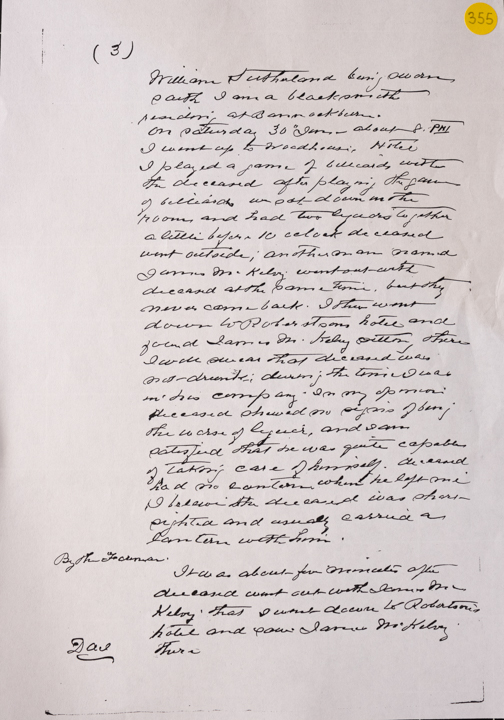 355
(3)
William Sutherland being sworn
saith I am a blacksmith
residing at Bannockburn.
On Saturday 30th Janr about 8. PM
I went up to Woodhouse's Hotel
I played a game of billiards with
the deceased after playing the game
of billiards we sat down in the
rooms and had two liquors together
a little before 10 oclock deceased
went outside, another man named
James McKelvy went out with
deceased at the same time, but they
never came back. I then went
down to Robertsons hotel and
found James McKelvy sitting there
I would swear that deceased was
not drunk during the time I was
in his company. In my opinion
deceased showed no signs of being
the worse of liquor, and I am
satisfied that he was quite capable
of taking care of himself. deceased
had no lantern when he left me
I believe the deceased was short
sighted and usually carried a
lantern with him.
By the Foreman.
It was about five minutes after
deceased went out with James Mc
Kelvy that I went down to Robertsons
hotel and saw James McKelvy
there